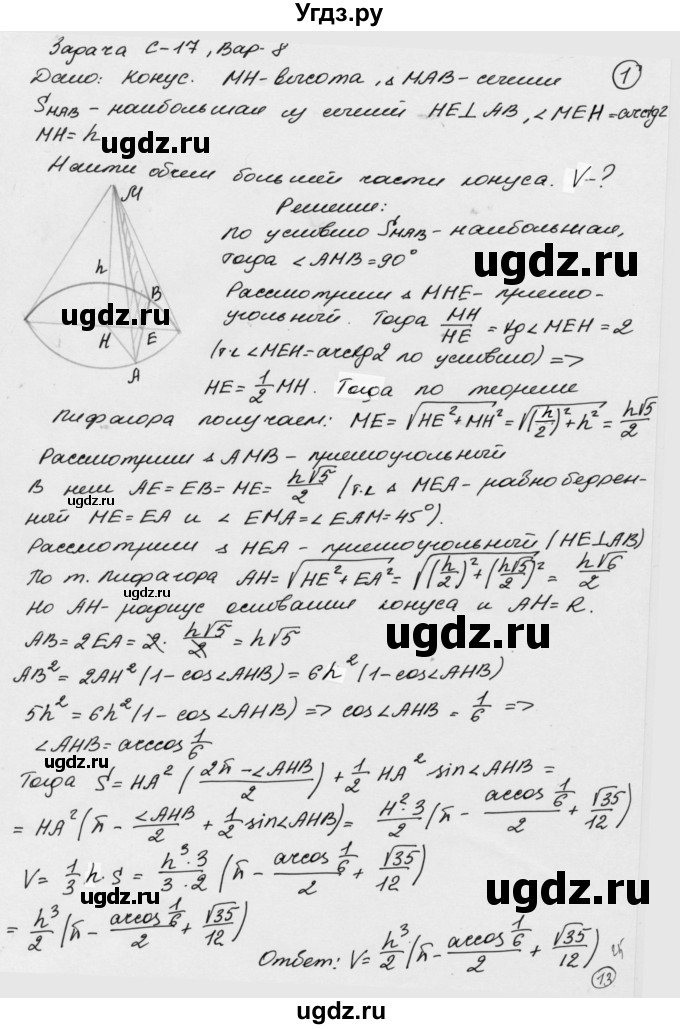 Угдз.ру
Задача С-17, Вар. 8
①
Дано: конус. MH-высота, △ MAB-сечение
S_MAB - наибольшая из сечений HE⊥AB, ∠MEH=arctg2
MH=h
ugdz.ru
Найти объем большей части конуса. V-?
M
h
B
H
E
A
Решение:
По условию S_MAB-наибольшая,
тогда ∠AMB=90°
Рассмотрим △ MHE- прямо-
угольный. Тогда MH/HE = tg∠MEH=2
(т.к ∠MEH=arctg2 по условию) =>
HE=1/2 MH. Тогда по теореме
Пифагора получаем: ME=√(HE²+MH²)=√((h/2)²+h²)=h√5/2
Рассмотрим △ AMB-прямоугольный
В нем AE=EB=ME=h√5/2 (т.к △ MEA-равнобедрен-
ный ME=EA и ∠EMA=∠EAM=45°).
Рассмотрим △ HEA-прямоугольный (HE⊥AB)
По т. Пифагора AH=√(HE²+EA²)=√((h/2)²+(h√5/2)²)=h√6/2
Но AH-радиус основания конуса и AH=R.
AB=2EA=2·h√5/2=h√5
AB²=2AH²(1-cos∠AHB)=6h²(1-cos∠AHB)
5h²=6h²(1-cos∠AHB)=>cos∠AHB=1/6 =>
∠AHB=arccos 1/6
Тогда S=HA²((2π-∠AHB)/2)+1/2 HA² sin∠AHB=
=HA²(π-∠AHB/2+1/2 sin∠AHB)= H²·3/2 (π-arccos 1/6 /2+√35/12)
V=1/3 h·S=h³·3/3·2 (π-arccos 1/6 /2+√35/12)
=h³/2 (π-arccos 1/6 /2+√35/12)
Ответ: V=h³/2 (π-arccos 1/6 /2+√35/12)
⑬
ugdz.ru
ugdz.ru
ugdz.ru
ugdz.ru
ugdz.ru
ugdz.ru
ugdz.ru
ugdz.ru
ugdz.ru
ugdz.ru